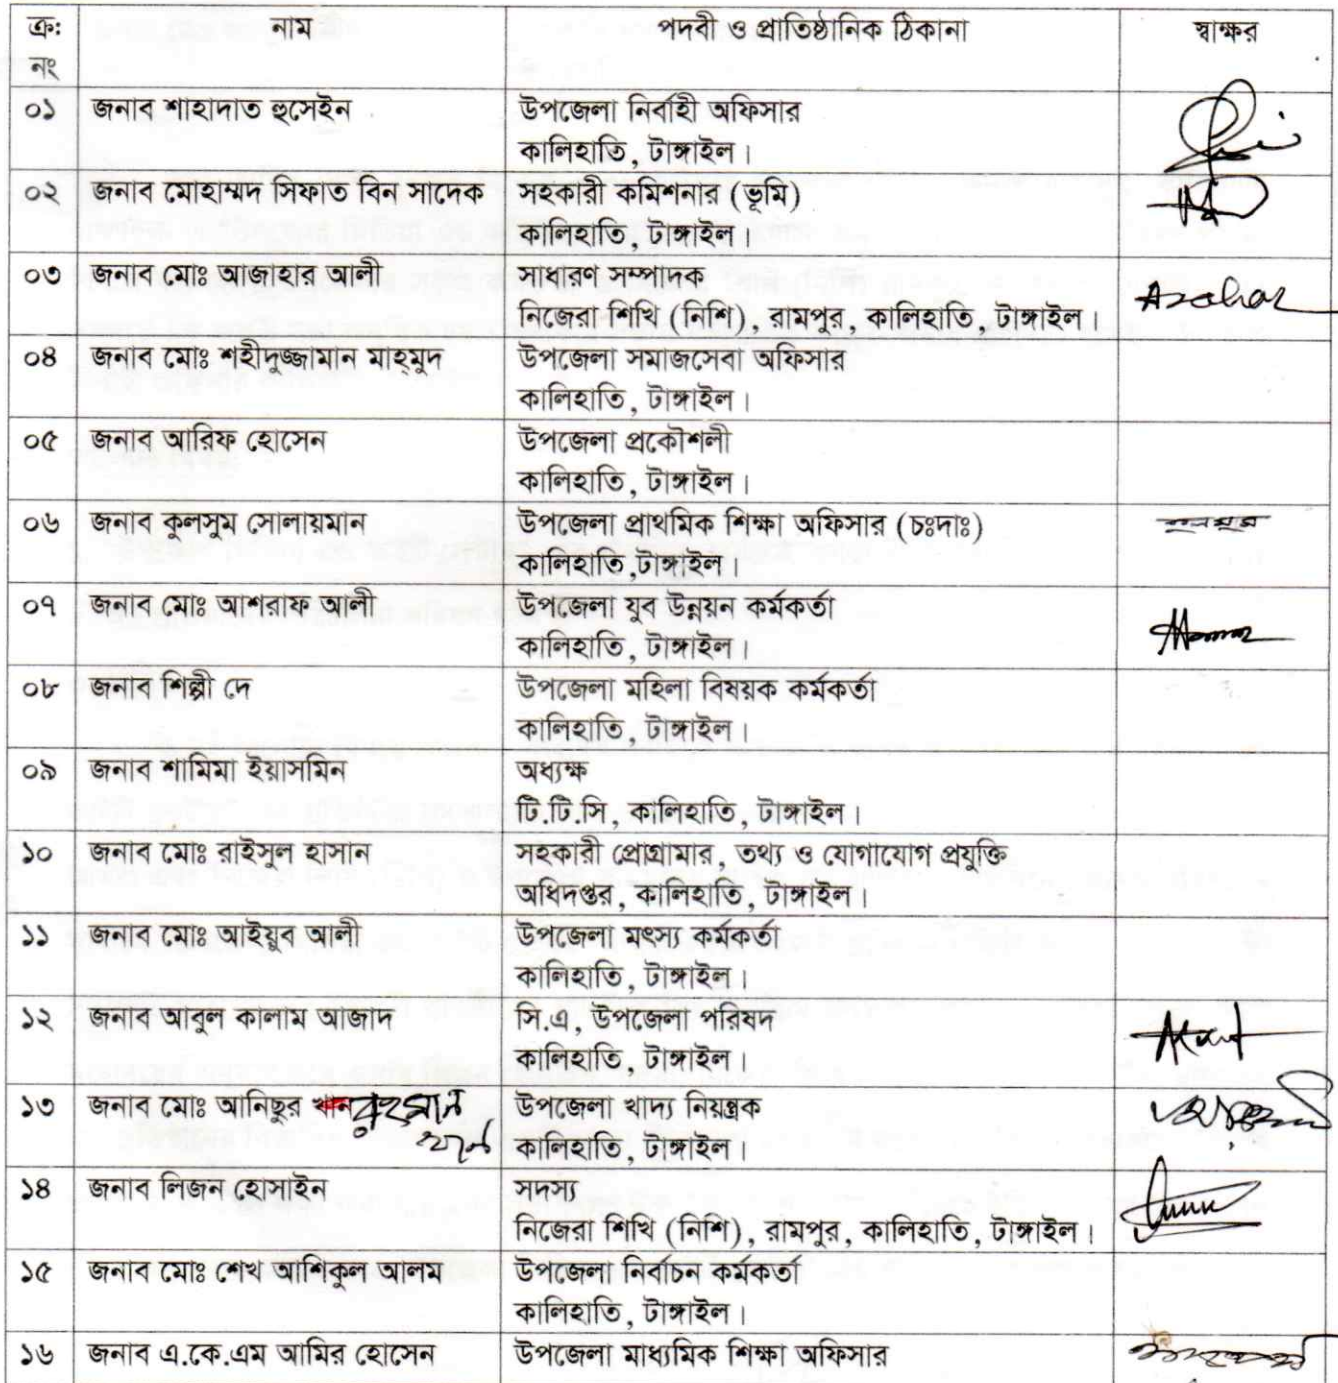 ক্র: নাম পদবী ও প্রাতিষ্ঠানিক ঠিকানা স্বাক্ষর
নং
০১ জনাব শাহাদাত হুসেইন উপজেলা নির্বাহী অফিসার
কালিহাতি, টাঙ্গাইল।
০২ জনাব মোহাম্মদ সিফাত বিন সাদেক সহকারী কমিশনার (ভূমি)
কালিহাতি, টাঙ্গাইল।
০৩ জনাব মোঃ আজাহার আলী সাধারণ সম্পাদক
নিজেরা শিখি (নিশি), রামপুর, কালিহাতি, টাঙ্গাইল। Azahar
০৪ জনাব মোঃ শহীদুজ্জামান মাহ্‌মুদ উপজেলা সমাজসেবা অফিসার
কালিহাতি, টাঙ্গাইল।
০৫ জনাব আরিফ হোসেন উপজেলা প্রকৌশলী
কালিহাতি, টাঙ্গাইল।
০৬ জনাব কুলসুম সোলায়মান উপজেলা প্রাথমিক শিক্ষা অফিসার (চঃদাঃ)
কালিহাতি,টাঙ্গাইল।
০৭ জনাব মোঃ আশরাফ আলী উপজেলা যুব উন্নয়ন কর্মকর্তা
কালিহাতি, টাঙ্গাইল।
০৮ জনাব শিল্পী দে উপজেলা মহিলা বিষয়ক কর্মকর্তা
কালিহাতি, টাঙ্গাইল।
০৯ জনাব শামিমা ইয়াসমিন অধ্যক্ষ
টি.টি.সি, কালিহাতি, টাঙ্গাইল।
১০ জনাব মোঃ রাইসুল হাসান সহকারী প্রোগ্রামার, তথ্য ও যোগাযোগ প্রযুক্তি
অধিদপ্তর, কালিহাতি, টাঙ্গাইল।
১১ জনাব মোঃ আইয়ুব আলী উপজেলা মৎস্য কর্মকর্তা
কালিহাতি, টাঙ্গাইল।
১২ জনাব আবুল কালাম আজাদ সি.এ, উপজেলা পরিষদ
কালিহাতি, টাঙ্গাইল।
১৩ জনাব মোঃ আনিছুর খান রহমান উপজেলা খাদ্য নিয়ন্ত্রক
খান কালিহাতি, টাঙ্গাইল।
১৪ জনাব লিজন হোসাইন সদস্য
নিজেরা শিখি (নিশি), রামপুর, কালিহাতি, টাঙ্গাইল।
১৫ জনাব মোঃ শেখ আশিকুল আলম উপজেলা নির্বাচন কর্মকর্তা
কালিহাতি, টাঙ্গাইল।
১৬ জনাব এ.কে.এম আমির হোসেন উপজেলা মাধ্যমিক শিক্ষা অফিসার